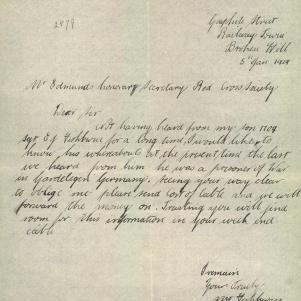 2878
Graphite Street
Railway Town
Broken Hill
5th Jan 1919
Mr Edmunds honorary Secretary Red Cross Society
Dear Sir
Not having heard from my son 1709
Sgt E J
for a long time, I would like to
know his whereabouts at the present time the last
we heard from him he was a prisoner of War
in Gardelegen Germany. Seeing your way clear
to oblige me please send cost of cable and we will
forward the money on. Trusting you will find
room for this information in your week end
cable
I remain
Yours Truly